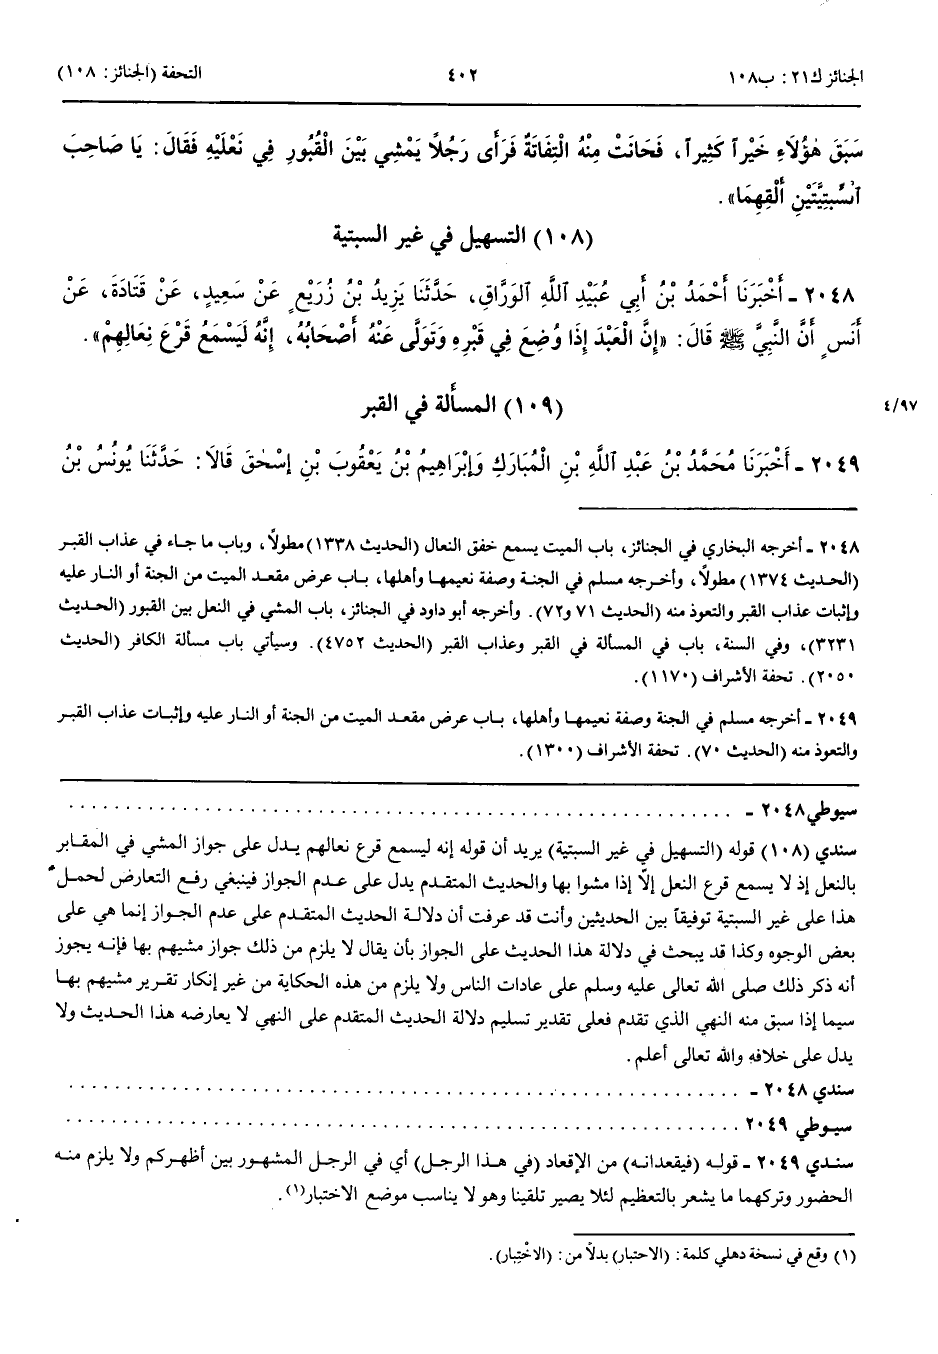 الجنائز ك٢١: ب١٠٨ ٤٠٢ التحفة (الجنائز: ١٠٨)
سَبَقَ هٰؤُلَاءِ خَيْراً كَثِيراً، فَحَانَتْ مِنْهُ الْتِفَاتَةٌ فَرَأَى رَجُلاً يَمْشِي بَيْنَ الْقُبُورِ فِي نَعْلَيْهِ فَقَالَ: يَا صَاحِبَ
ٱلسِّبْتِيَّتَيْنِ أَلْقِهِمَا».
(١٠٨) التسهيل في غير السبتية
٢٠٤٨ ـ أَخْبَرَنَا أَحْمَدُ بْنُ أَبِي عُبَيْدِ ٱللَّهِ الْوَرَّاقِ، حَدَّثَنَا يَزِيدُ بْنُ زُرَيْعٍ عَنْ سَعِيدٍ، عَنْ قَتَادَةَ، عَنْ
أَنَسٍ أَنَّ النَّبِيَّ ﷺ قَالَ: «إِنَّ الْعَبْدَ إِذَا وُضِعَ فِي قَبْرِهِ وَتَوَلَّى عَنْهُ أَصْحَابُهُ، إِنَّهُ لَيَسْمَعُ قَرْعَ نِعَالِهِمْ».
(١٠٩) المسألة في القبر
٤/٩٧
٢٠٤٩ ـ أَخْبَرَنَا مُحَمَّدُ بْنُ عَبْدِ ٱللَّهِ بْنِ الْمُبَارَكِ وَإِبْرَاهِيمُ بْنُ يَعْقُوبَ بْنِ إِسْحٰقَ قَالَا: حَدَّثَنَا يُونُسُ بْنُ
٢٠٤٨ ـ أخرجه البخاري في الجنائز، باب الميت يسمع خفق النعال (الحديث ١٣٣٨) مطولاً، وباب ما جاء في عذاب القبر
(الحديث ١٣٧٤) مطولاً، وأخرجه مسلم في الجنة وصفة نعيمها وأهلها، باب عرض مقعد الميت من الجنة أو النار عليه
وإثبات عذاب القبر والتعوذ منه (الحديث ٧١ و٧٢). وأخرجه أبو داود في الجنائز، باب المشي في النعل بين القبور (الحديث
٣٢٣١)، وفي السنة، باب في المسألة في القبر وعذاب القبر (الحديث ٤٧٥٢). وسيأتي باب مسألة الكافر (الحديث
٢٠٥٠). تحفة الأشراف (١١٧٠).
٢٠٤٩ ـ أخرجه مسلم في الجنة وصفة نعيمها وأهلها، باب عرض مقعد الميت من الجنة أو النار عليه وإثبات عذاب القبر
والتعوذ منه (الحديث ٧٠). تحفة الأشراف (١٣٠٠).
سيوطي ٢٠٤٨ ـ ................................................................
سندي (١٠٨) قوله (التسهيل في غير السبتية) يريد أن قوله إنه ليسمع قرع نعالهم يدل على جواز المشي في المقابر
بالنعل إذ لا يسمع قرع النعل إلّا إذا مشوا بها والحديث المتقدم يدل على عدم الجواز فينبغي رفع التعارض لحمل
هذا على غير السبتية توفيقاً بين الحديثين وأنت قد عرفت أن دلالة الحديث المتقدم على عدم الجواز إنما هي على
بعض الوجوه وكذا قد يبحث في دلالة هذا الحديث على الجواز بأن يقال لا يلزم من ذلك جواز مشيهم بها فإنه يجوز
أنه ذكر ذلك صلى الله تعالى عليه وسلم على عادات الناس ولا يلزم من هذه الحكاية من غير إنكار تقرير مشيهم بها
سيما إذا سبق منه النهي الذي تقدم فعلى تقدير تسليم دلالة الحديث المتقدم على النهي لا يعارضه هذا الحديث ولا
يدل على خلافه والله تعالى أعلم.
سندي ٢٠٤٨ ـ ................................................................
سيوطي ٢٠٤٩ ................................................................
سندي ٢٠٤٩ ـ قوله (فيقعدانه) من الإقعاد (في هذا الرجل) أي في الرجل المشهور بين أظهركم ولا يلزم منه
الحضور وتركهما ما يشعر بالتعظيم لئلا يصير تلقينا وهو لا يناسب موضع الاختبار(١).
(١) وقع في نسخة دهلي كلمة: (الاحتبار) بدلاً من: (الاخْتِبار).